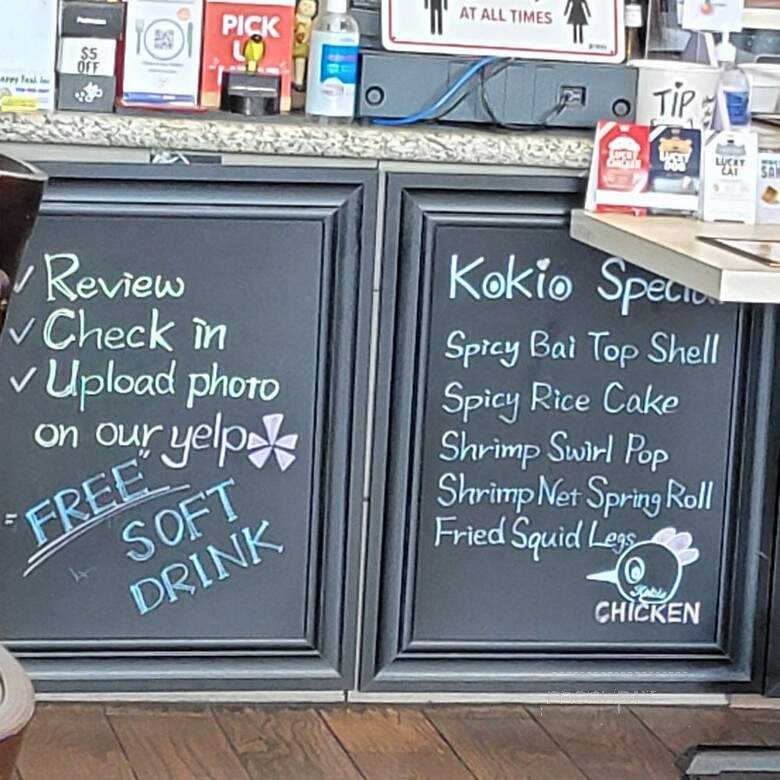 $5
OFF
PICK
AT ALL TIMES
TIP
LUCKY
CAT
✓ Review
✓ Check in
✓ Upload photo
on our yelp
= "FREE"
SOFT
DRINK
Kokio Speci
Spicy Bai Top Shell
Spicy Rice Cake
Shrimp Swirl Pop
Shrimp Net Spring Roll
Fried Squid Legs
Kokio
CHICKEN